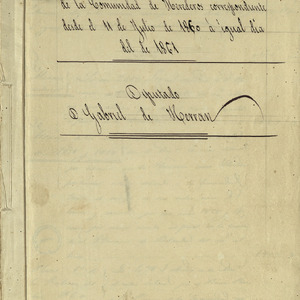 de la Comunidad de Herederos correspondiente
desde el 11 de Julio de 1860 à igual dia
del de 1861
Diputado
D Gabriel de Merran